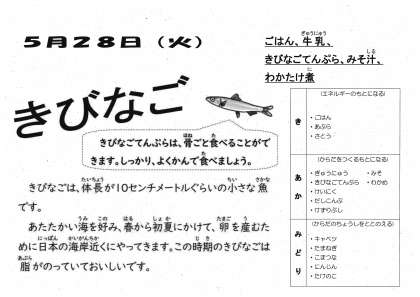 5月28日（火）
ごはん、牛乳、
きびなごてんぷら、みそ汁、
わかたけ煮
きびなご
きびなごてんぷらは、骨ごと食べることがで
きます。しっかり、よくかんで食べましょう。
きびなごは、体長が10センチメートルぐらいの小さな魚
です。
あたたかい海を好み、春から初夏にかけて、卵を産むた
めに日本の海岸近くにやってきます。この時期のきびなごは
脂がのっていておいしいです。
（エネルギーのもとになる）
き
・ごはん
・あぶら
・さとう
（からだをつくるもとになる）
あか
・ぎゅうにゅう ・みそ
・きびなごてんぷら ・わかめ
・けいにく
・だしこんぶ
・けずりぶし
（からだのちょうしをととのえる）
みどり
・キャベツ
・たまねぎ
・こまつな
・にんじん
・たけのこ